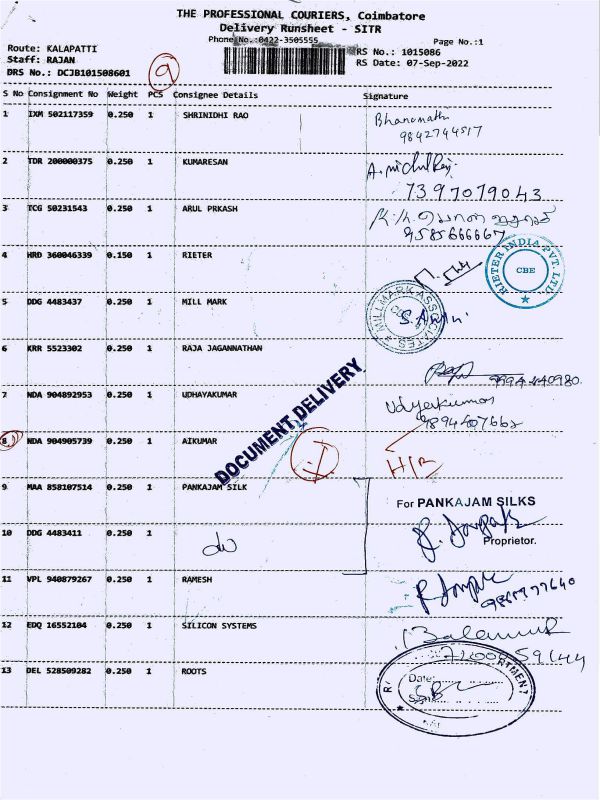 THE PROFESSIONAL COURIERS, Coimbatore
Delivery Runsheet - SITR
Phone No.:0422-3505555
Page No.:1
Route: KALAPATTI
RS No.: 1015086
Staff: RAJAN
RS Date: 07-Sep-2022
DRS No.: DCJB101508601
S No Consignment No Weight PCS Consignee Details Signature
1 IXM 502117359 0.250 1 SHRINIDHI RAO
9842744517
2 TDR 200000375 0.250 1 KUMARESAN
7397079043
3 TCG 50231543 0.250 1 ARUL PRKASH
9585666667
4 HRD 360046339 0.150 1 RIETER
RIETER INDIA PVT. LTD.
CBE
5 DDG 4483437 0.250 1 MILL MARK
MILLMARK ASSOCIATES
6 KRR 5523302 0.250 1 RAJA JAGANNATHAN
DOCUMENT DELIVERY
7 NDA 904892953 0.250 1 UDHAYAKUMAR
Udyakumar
8 NDA 904905739 0.250 1 AIKUMAR
9 MAA 858107514 0.250 1 PANKAJAM SILK
For PANKAJAM SILKS
Proprietor.
10 DDG 4483411 0.250 1
do
11 VPL 940879267 0.250 1 RAMESH
12 EDQ 16552104 0.250 1 SILICON SYSTEMS
13 DEL 528509282 0.250 1 ROOTS
Date: